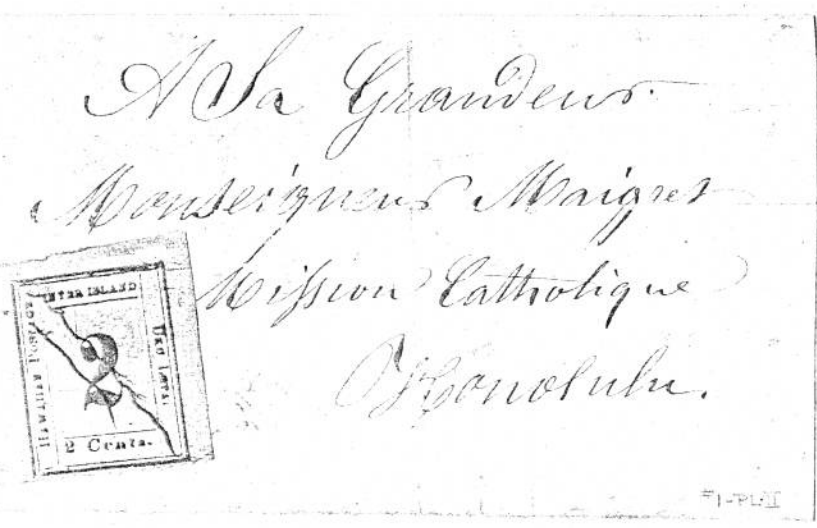 A Sa Grandeur
Monseigneur Maigret
Mission Catholique
Honolulu.
INTER ISLAND
UKU LETA.
2
2 Cents.
HAWAIIAN POSTAGE
#1-PL III